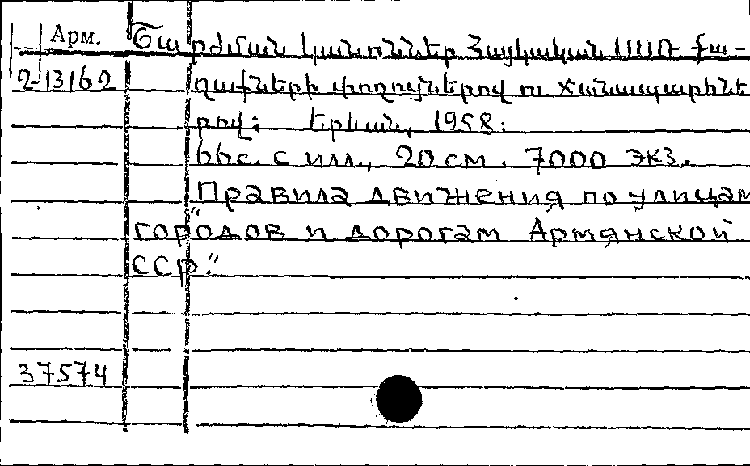 Арм. Շարժման կանոններ Հայկական ՍՍՌ քա-
2-13162 ղաքների փողոցներով ու ճանապարհնե
րով: Երևան, 1958:
66с. с илл., 20 см. 7000 экз.
"Правила движения по улицам
городов и дорогам Армянской
ССР."
37574